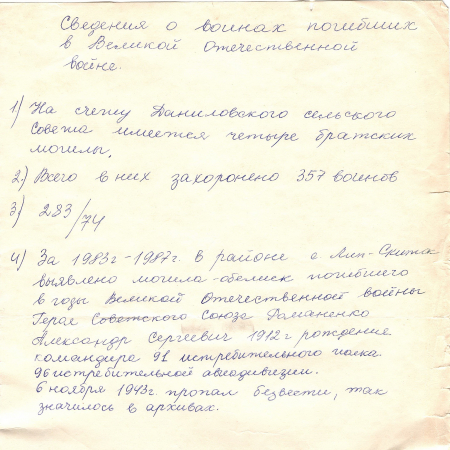 Сведения о воинах погибших
в Великой Отечественной
войне.
1) На счету Даниловского сельского
Совета имеется четыре братских
могилы.
2) Всего в них захоронено 357 воинов
3) 283/74
4) За 1983г-1987г. в районе с Лип-Скиток
выявлено могила-обелиск погибшего
в годы Великой Отечественной войны
Героя Советского Союза Романенко
Александр Сергеевич 1912г рождение
командира 91 истребительного полка.
96 истребительной авиодивизии.
6 ноября 1943г. пропал безвести, так
значилось в архивах.